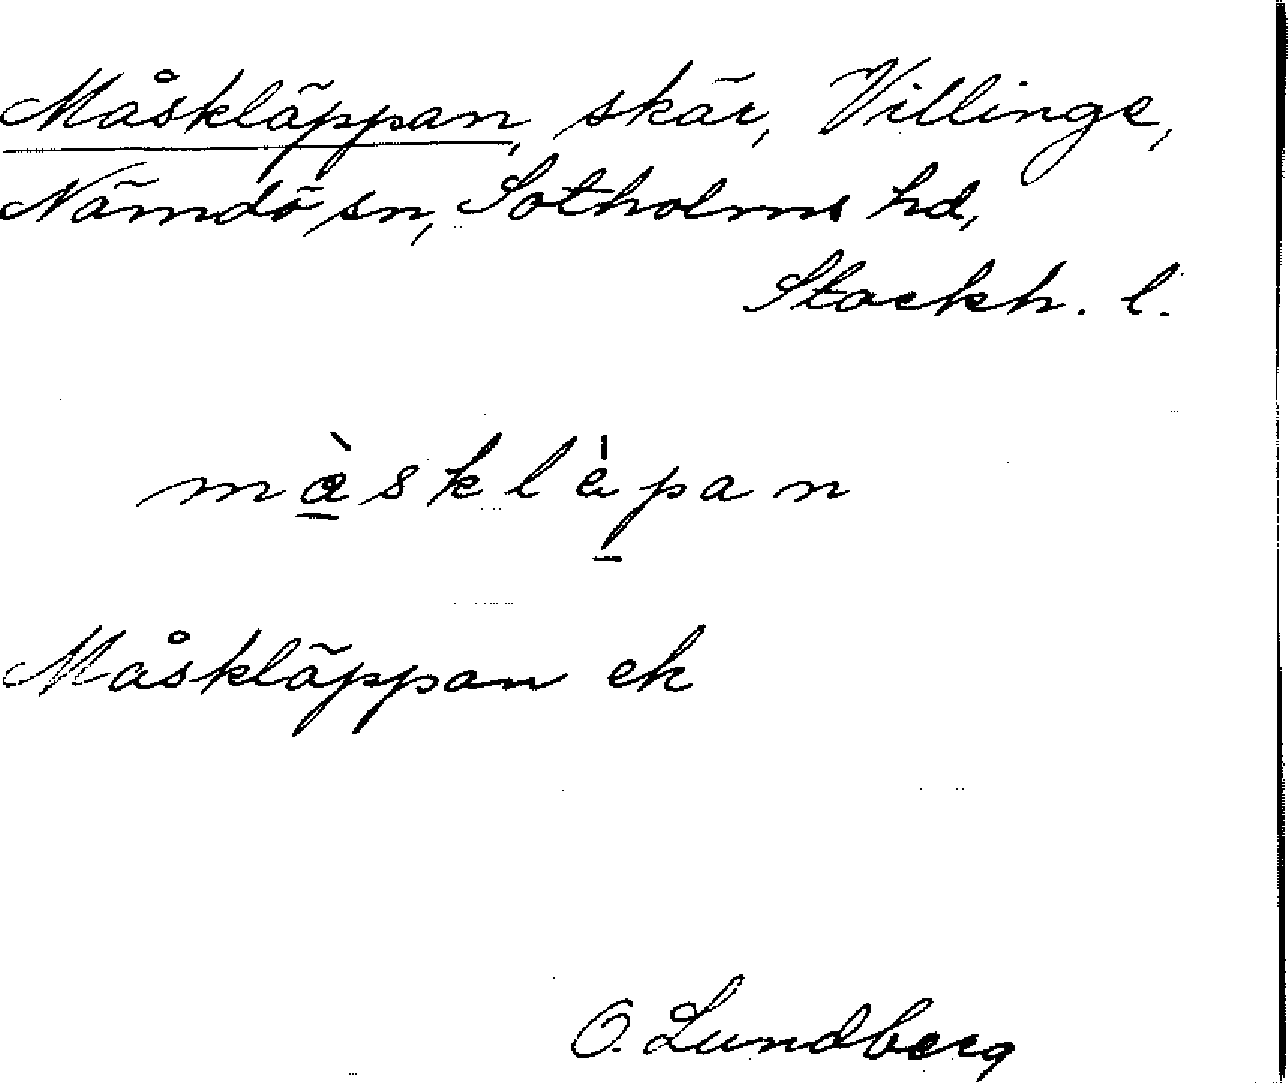 Måskläppan, skär, Villinge,
Nämdö sn, Sotholms hd,
Stockh. l.
màsklèpan
Måskläppan ek
O. Lundberg